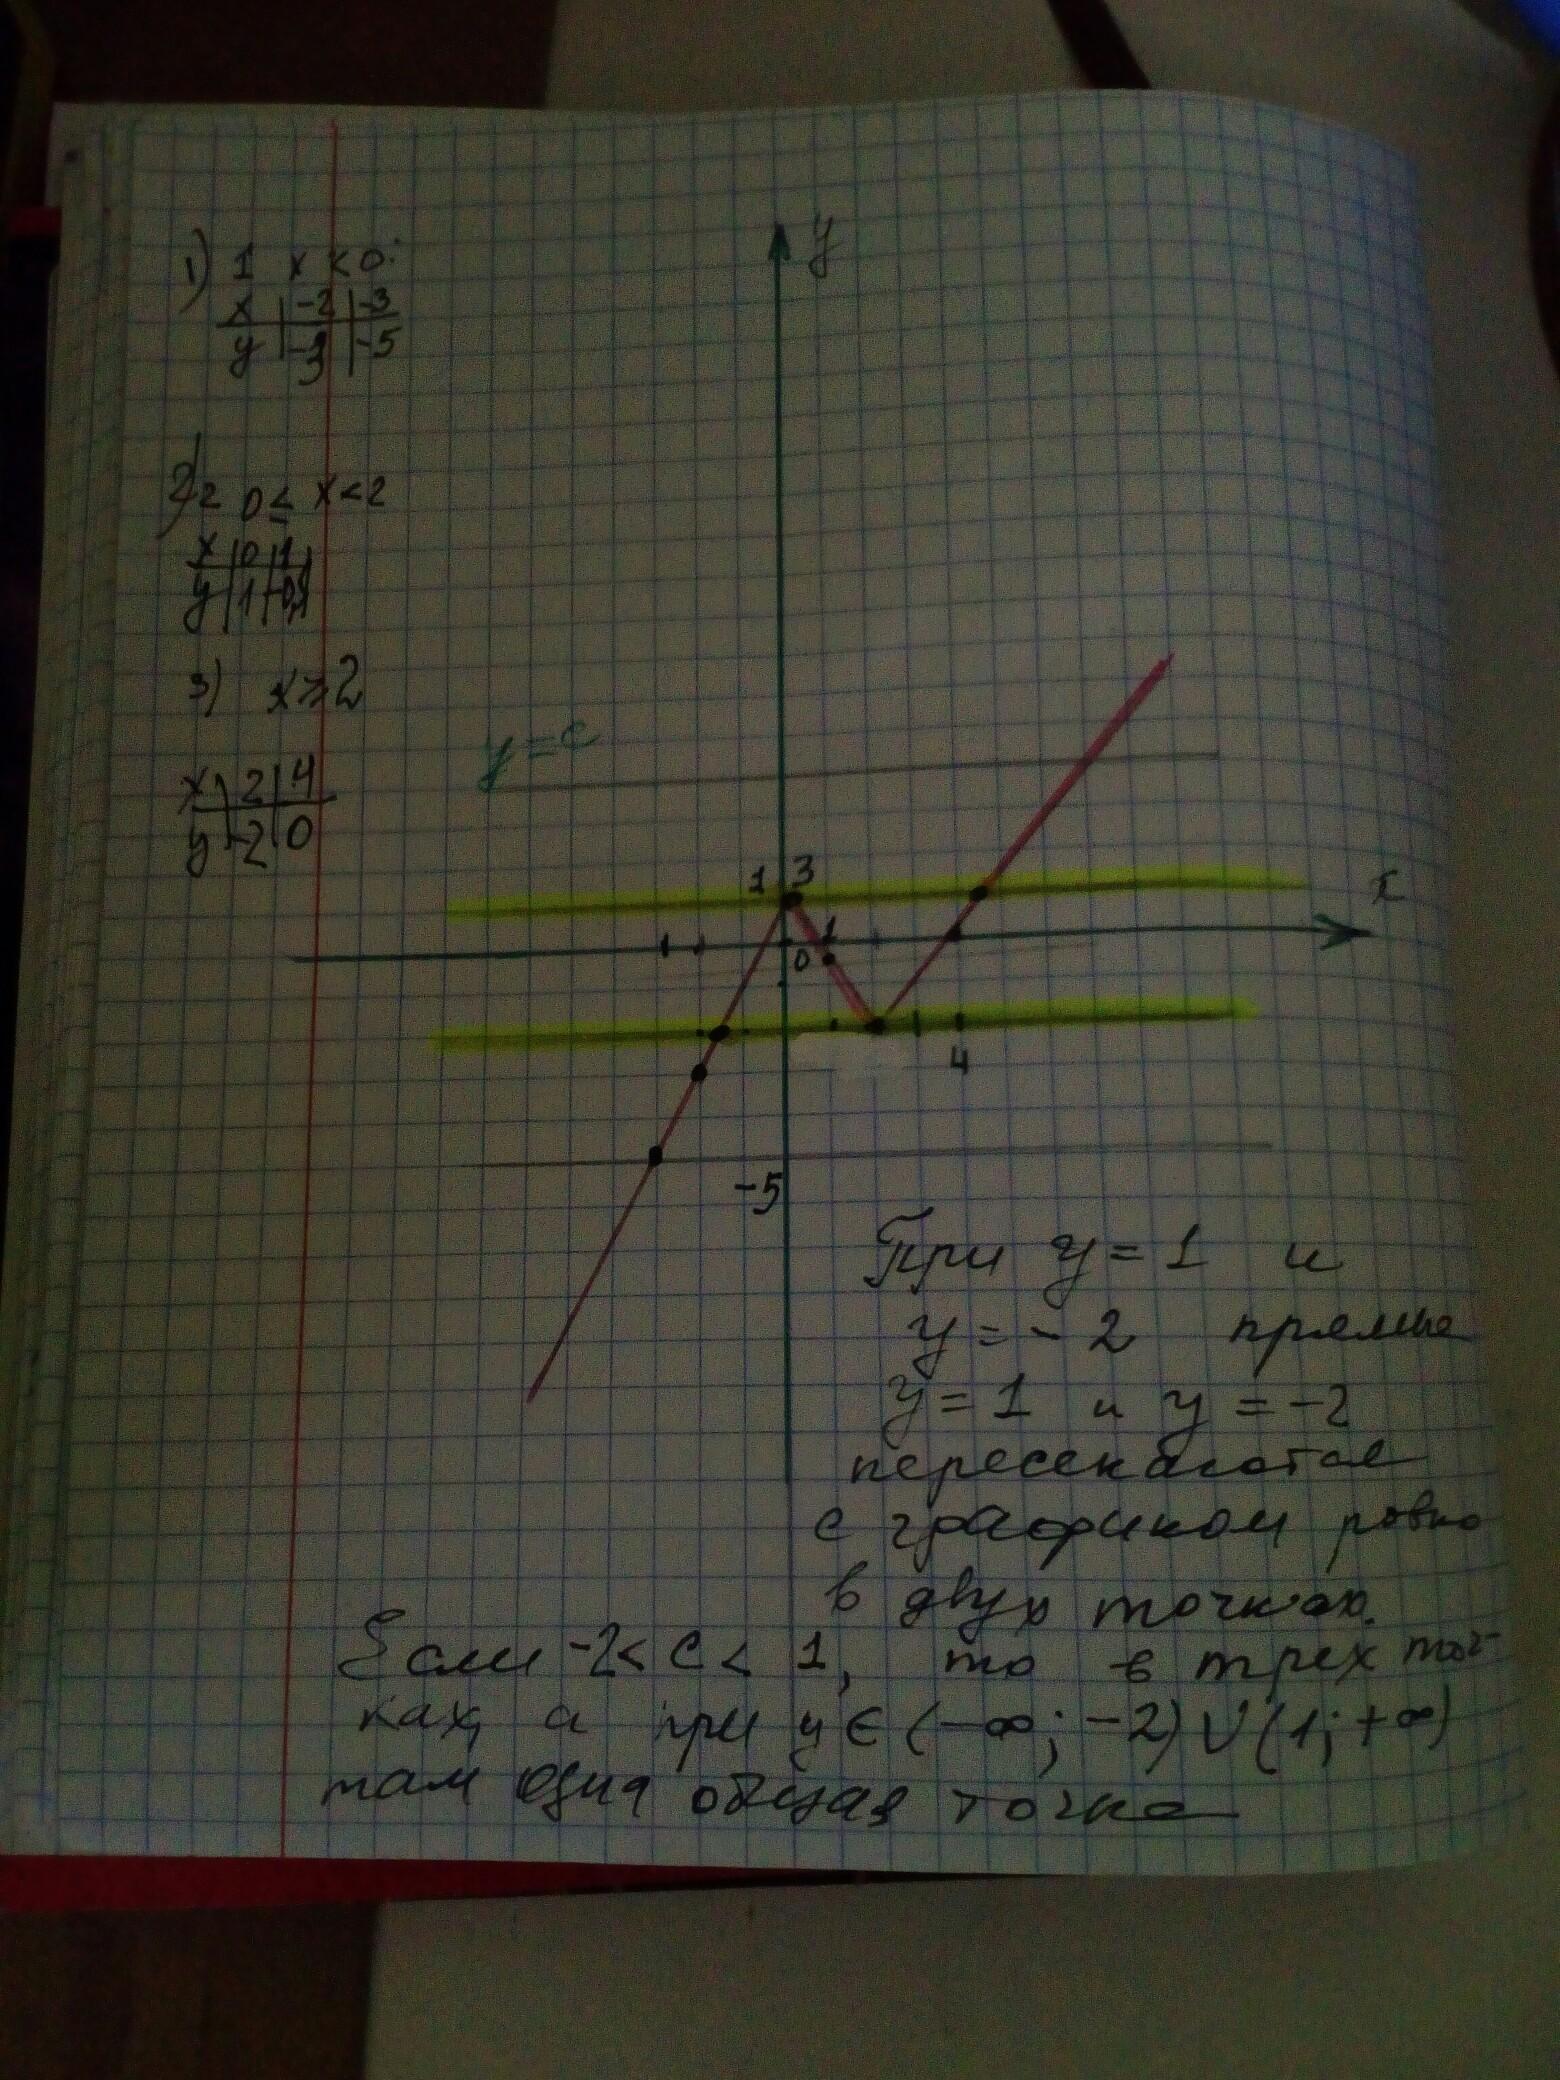 1) 1 x < 0.
x | -2 | -3
y | -3 | -5
2) 2 0 ≤ x < 2
x | 0 | 1
y | 1 |
3) x ≥ 2
x | 2 | 4
y | -2 | 0
y
y = c
1 3
x
1
0
4
-5
При y = 1 и
y = - 2 прямые
y = 1 и y = -2
пересекаются
с графиком ровно
в двух точках.
Если -2 < c < 1, то в трех точ-
ках, а при y ∈ (-∞; -2) ∪ (1; +∞)
там одна общая точка